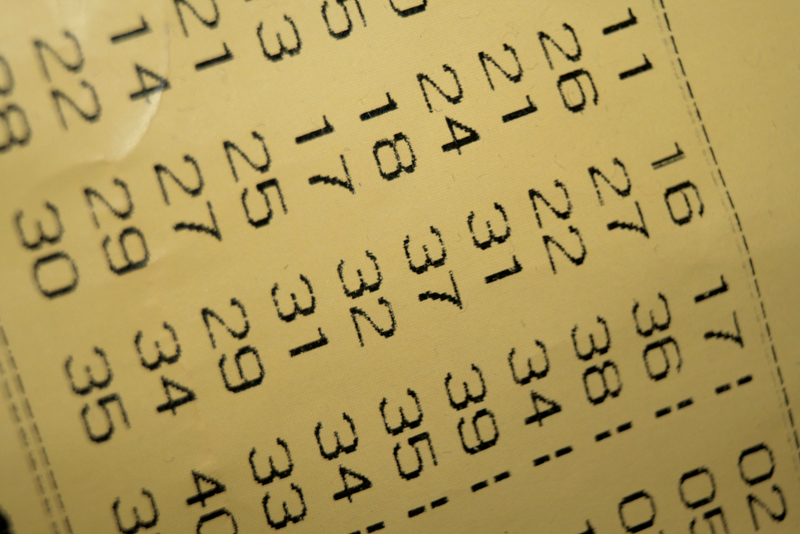 11 16 17 - 02
26 27 36 -- 05
21 22 38 --
24 31 34 --
18 37 39 --
17 32 35 --
21 25 31 34 --
14 27 29 33
22 29 34 40
28 30 35